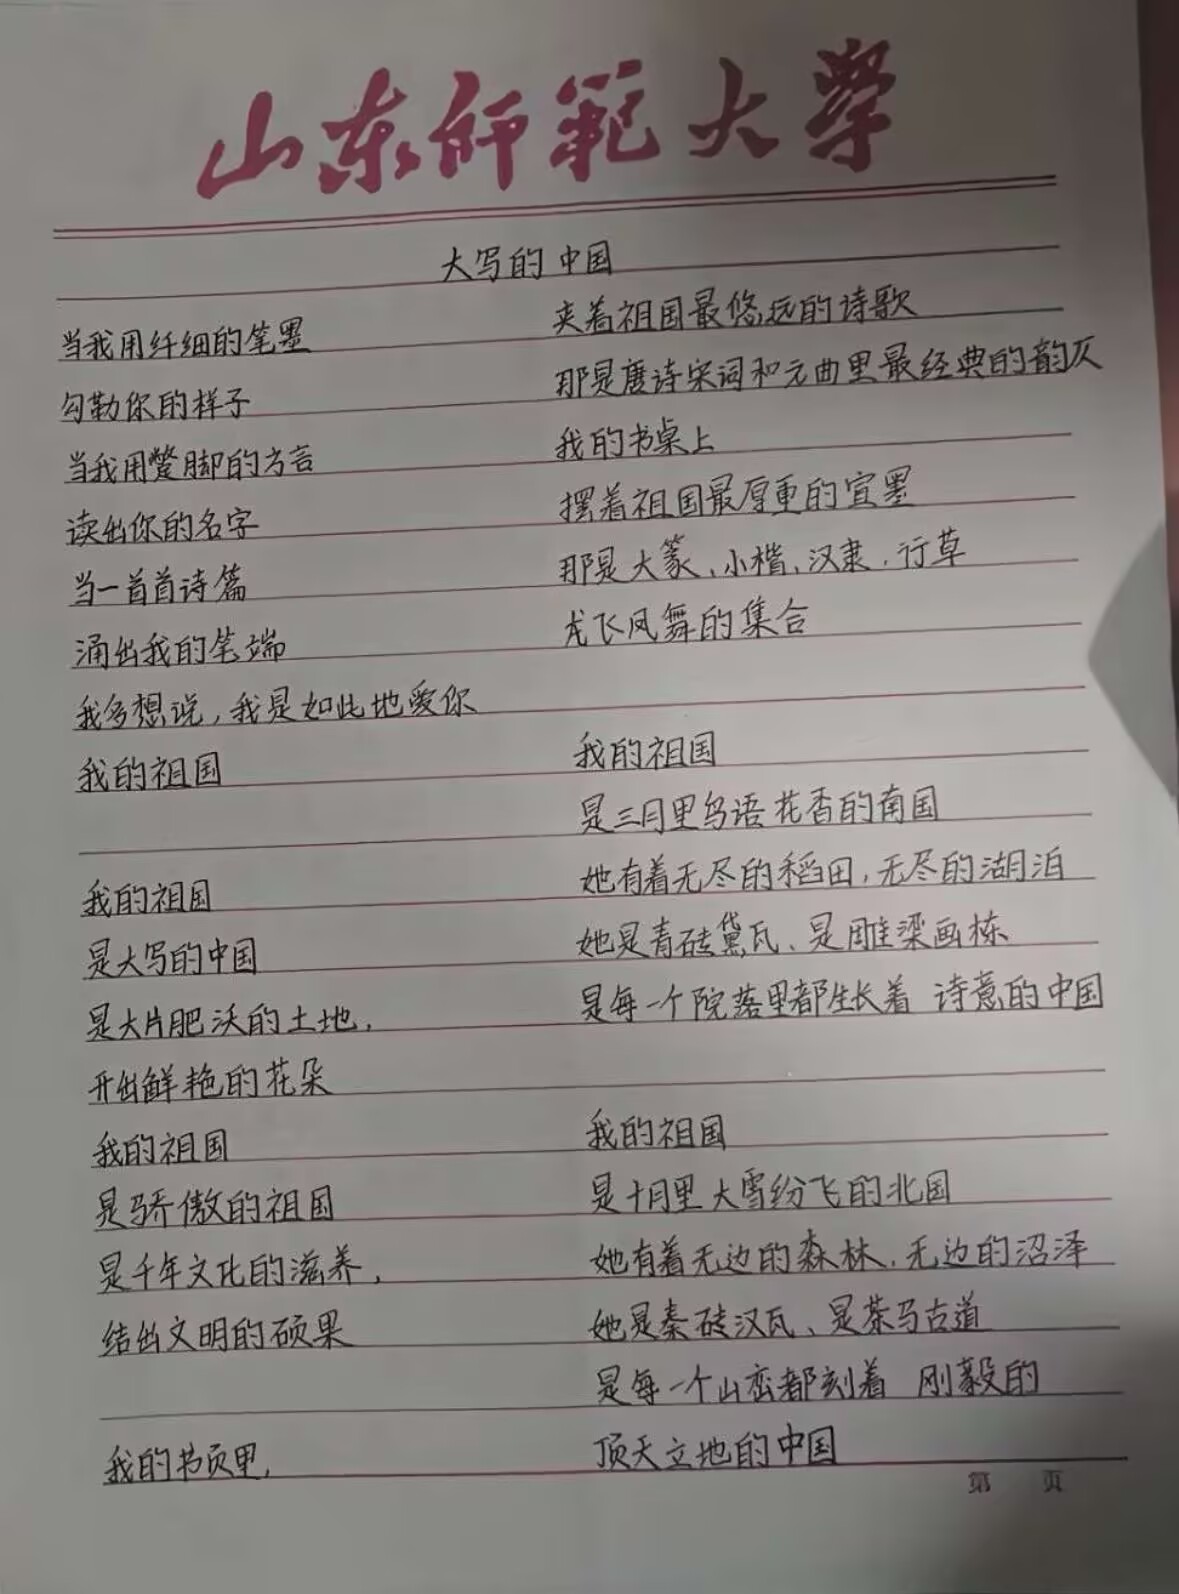 山东师范大学
大写的中国
当我用纤细的笔墨
勾勒你的样子
当我用蹩脚的方言
读出你的名字
当一首首诗篇
涌出我的笔端
我多想说，我是如此地爱你
我的祖国
我的祖国
是大写的中国
是大片肥沃的土地，
开出鲜艳的花朵
我的祖国
是骄傲的祖国
是千年文化的滋养，
结出文明的硕果
我的书页里，
夹着祖国最悠远的诗歌
那是唐诗宋词和元曲里最经典的韵仄
我的书桌上
摆着祖国最厚重的宣墨
那是大篆、小楷、汉隶、行草
龙飞凤舞的集合
我的祖国
是三月里鸟语花香的南国
她有着无尽的稻田，无尽的湖泊
她是青砖黛瓦、是雕梁画栋
是每一个院落里都生长着 诗意的中国
我的祖国
是十月里大雪纷飞的北国
她有着无边的森林，无边的沼泽
她是秦砖汉瓦、是茶马古道
是每一个山峦都刻着 刚毅的
顶天立地的中国
第 页